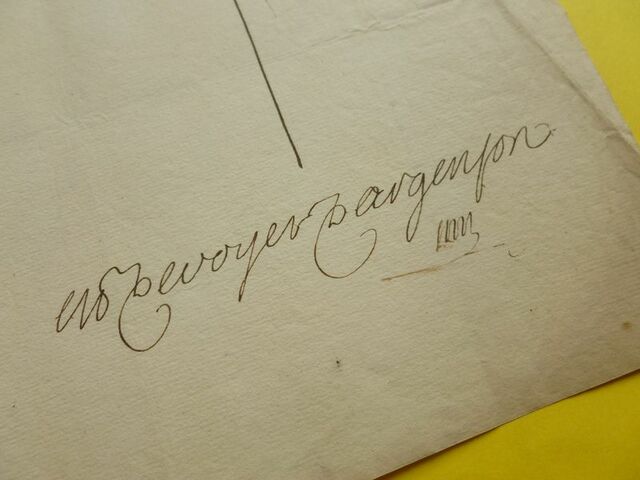 MR De voyer Dargenson